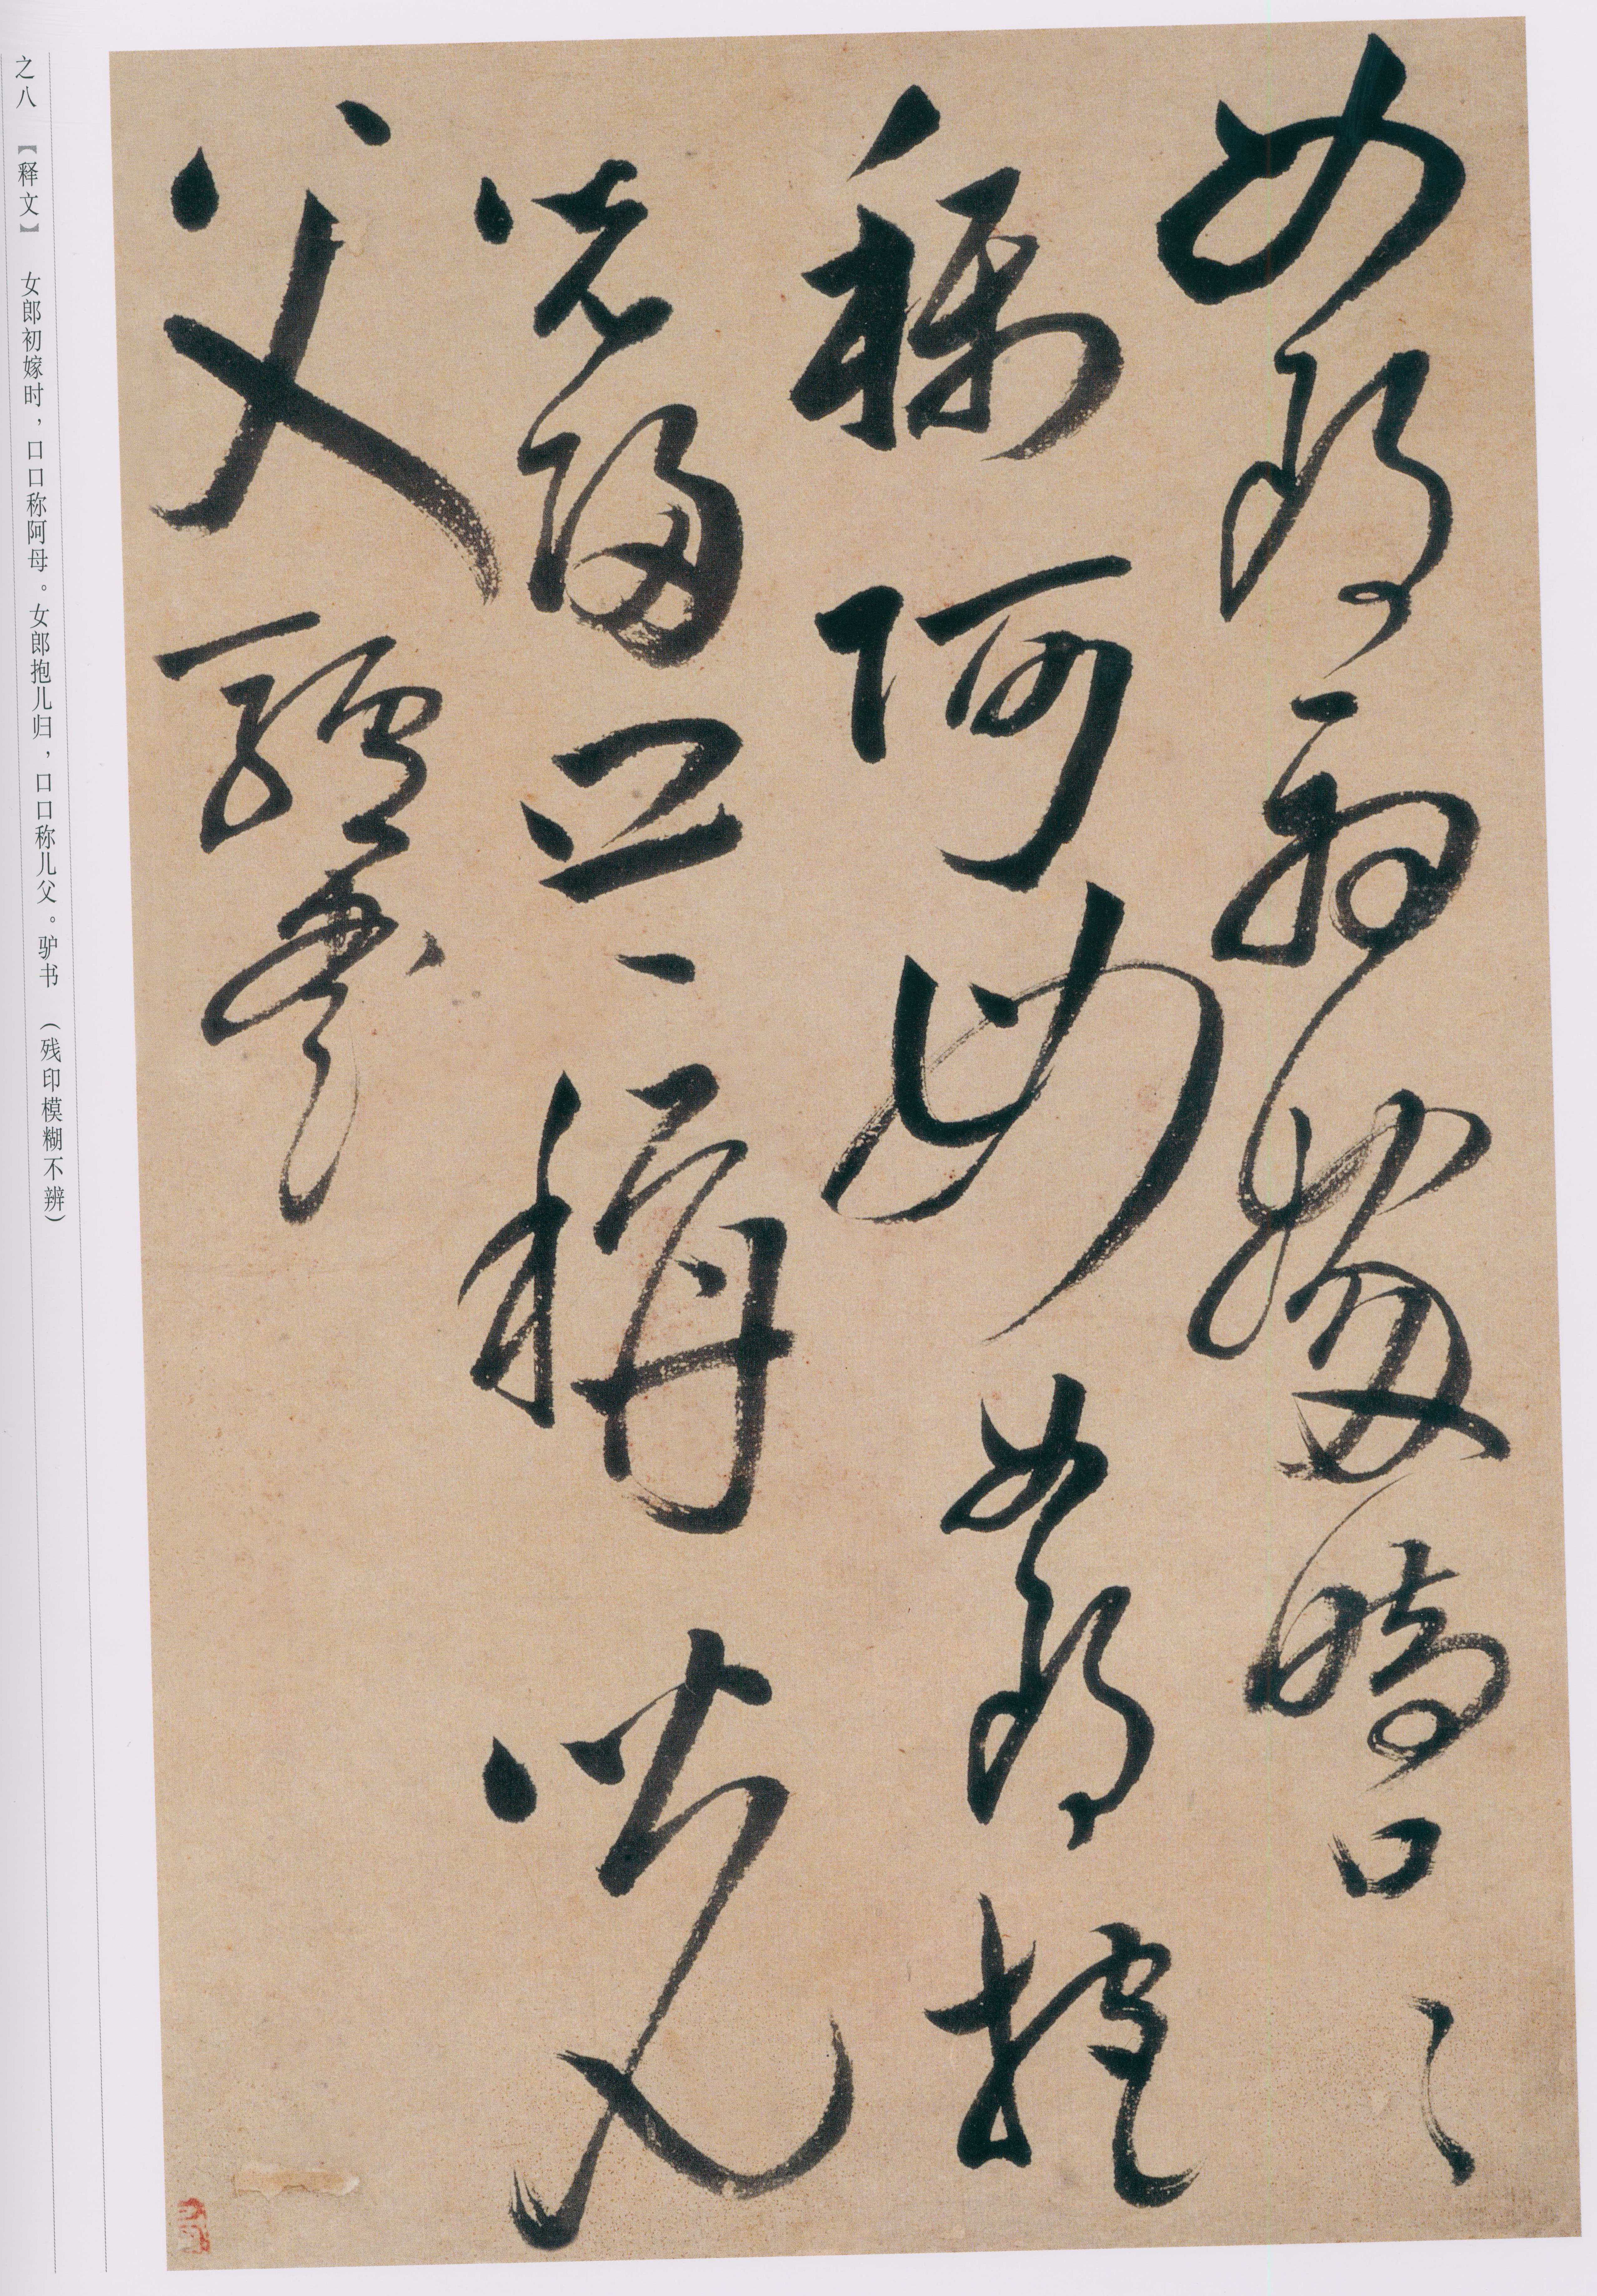 女郎初嫁時口々
称阿母女郎抱
兒歸口々稱兒
父驢書
之八 【释文】 女郎初嫁时，口口称阿母。女郎抱儿归，口口称儿父。驴书 （残印模糊不辨）